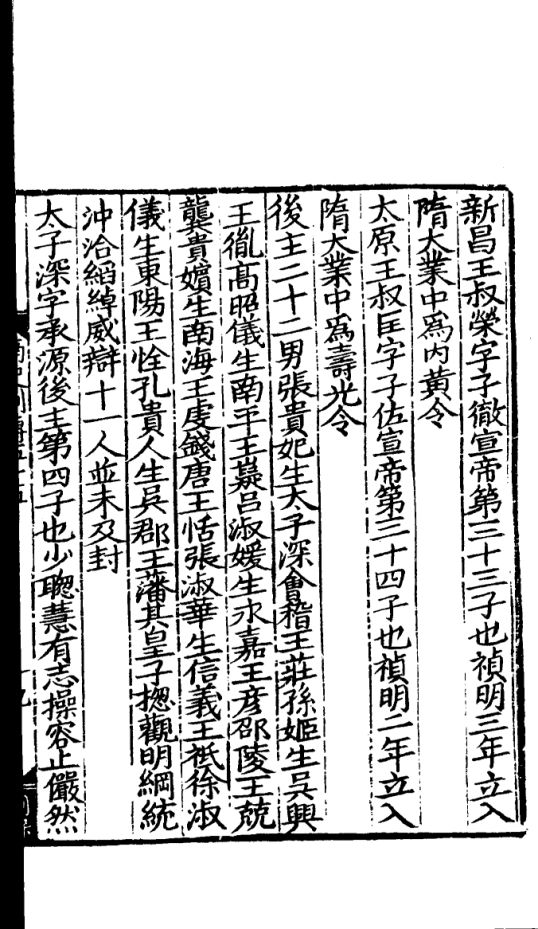 新昌王叔榮字子徹宣帝第三十三子也禎明三年立入
隋大業中爲内黄令
太原王叔匡字子佐宣帝第三十四子也禎明二年立入
隋大業中爲壽光令
後主二十二男張貴妃生太子深會稽王莊孫姬生吳興
王胤髙昭儀生南平王嶷吕淑媛生永嘉王彦邵陵王兢
龔貴嬪生南海王虔錢唐王恬張淑華生信義王祗徐淑
儀生東陽王恮孔貴人生吳郡王藩其皇子揔觀明綱統
沖洽縚綽威辯十一人並未及封
太子深字承源後主第四子也少聰慧有志操容止儼然